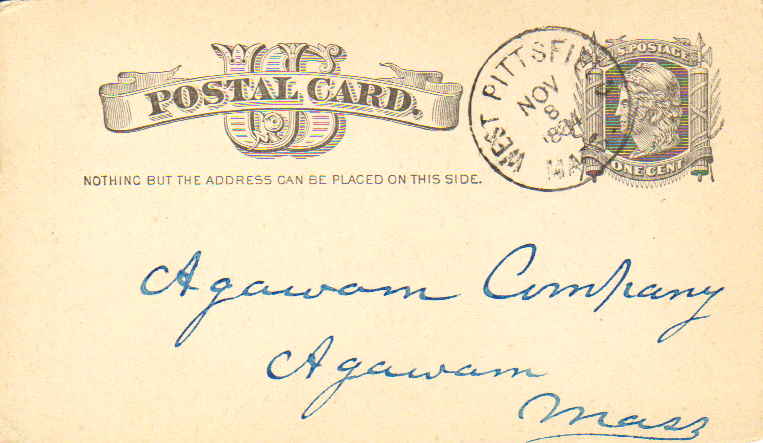 US
POSTAL CARD.
NOTHING BUT THE ADDRESS CAN BE PLACED ON THIS SIDE.
WEST PITTSFIELD
NOV
8
MA
U.S. POSTAGE
ONE CENT
Agawam Company
Agawam
Mass